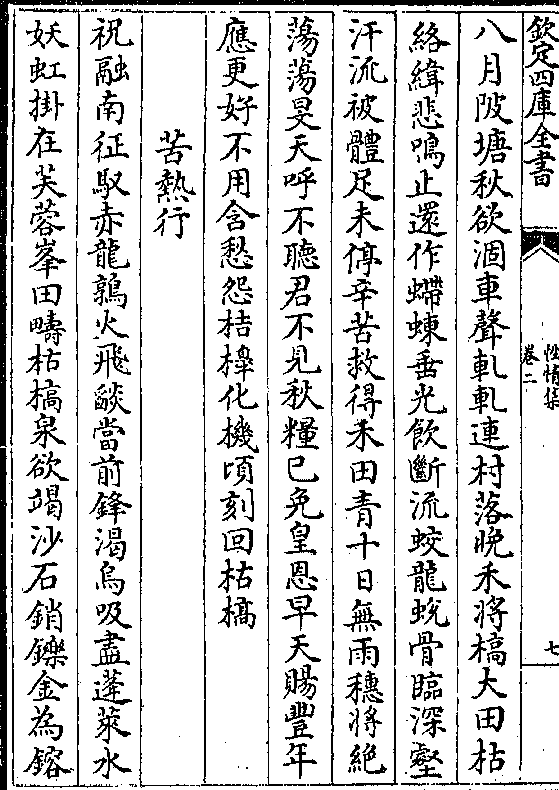 欽定四庫全書
卷二
七
八月陂塘秋欲涸車聲軋軋連村落晚禾將槁大田枯
絡緯悲鳴止還作螮蝀垂光飲斷流蛟龍蛻骨臨深壑
汗流被體足未停辛苦救得禾田青十日無雨穗將絶
蕩蕩旻天呼不聽君不見秋糧已免皇恩早天賜豐年
應更好不用含愁怨桔橰化機頃刻回枯槁
苦熱行
祝融南征馭赤龍鶉火飛燄當前鋒渴烏吸盡蓬萊水
妖虹掛在芙蓉峯田疇枯槁泉欲竭沙石銷鑠金為鎔